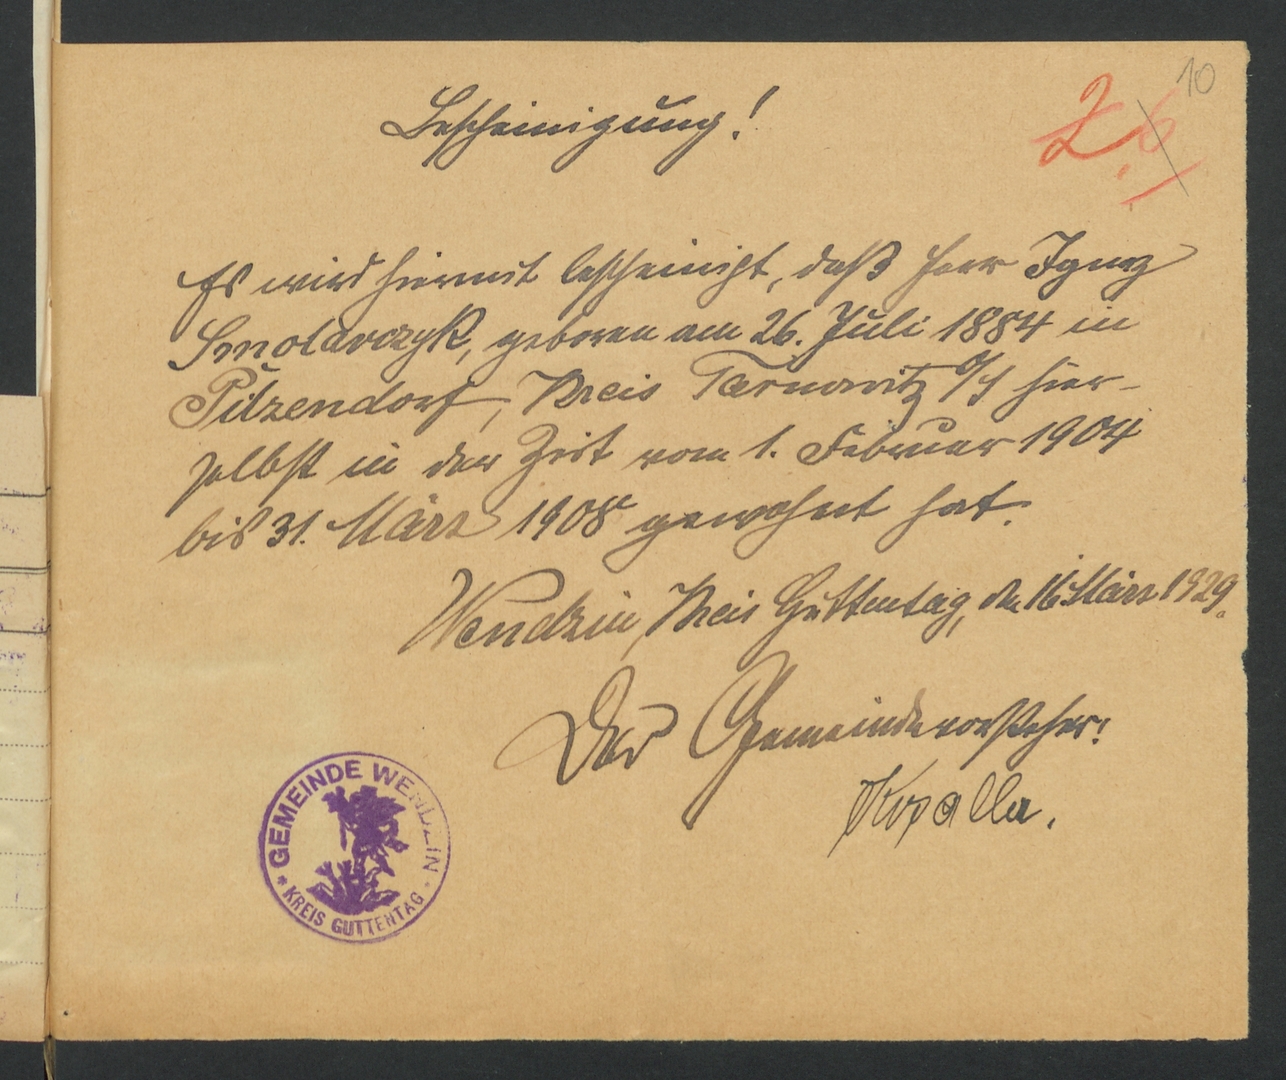 10
26
Bescheinigung!
Es wird hiermit bescheinigt, daß Herr Ignaz
Smolarczyk, geboren am 26. Juli 1884 in
Pilzendorf, Kreis Tarnowitz O/S hier-
selbst in der Zeit vom 1. Februar 1904
bis 31. März 1908 gewohnt hat.
Wendzin, Kreis Guttentag, den 16. März 1929.
Der Gemeindevorsteher:
Kopalla.
GEMEINDE WENDZIN
* KREIS GUTTENTAG *